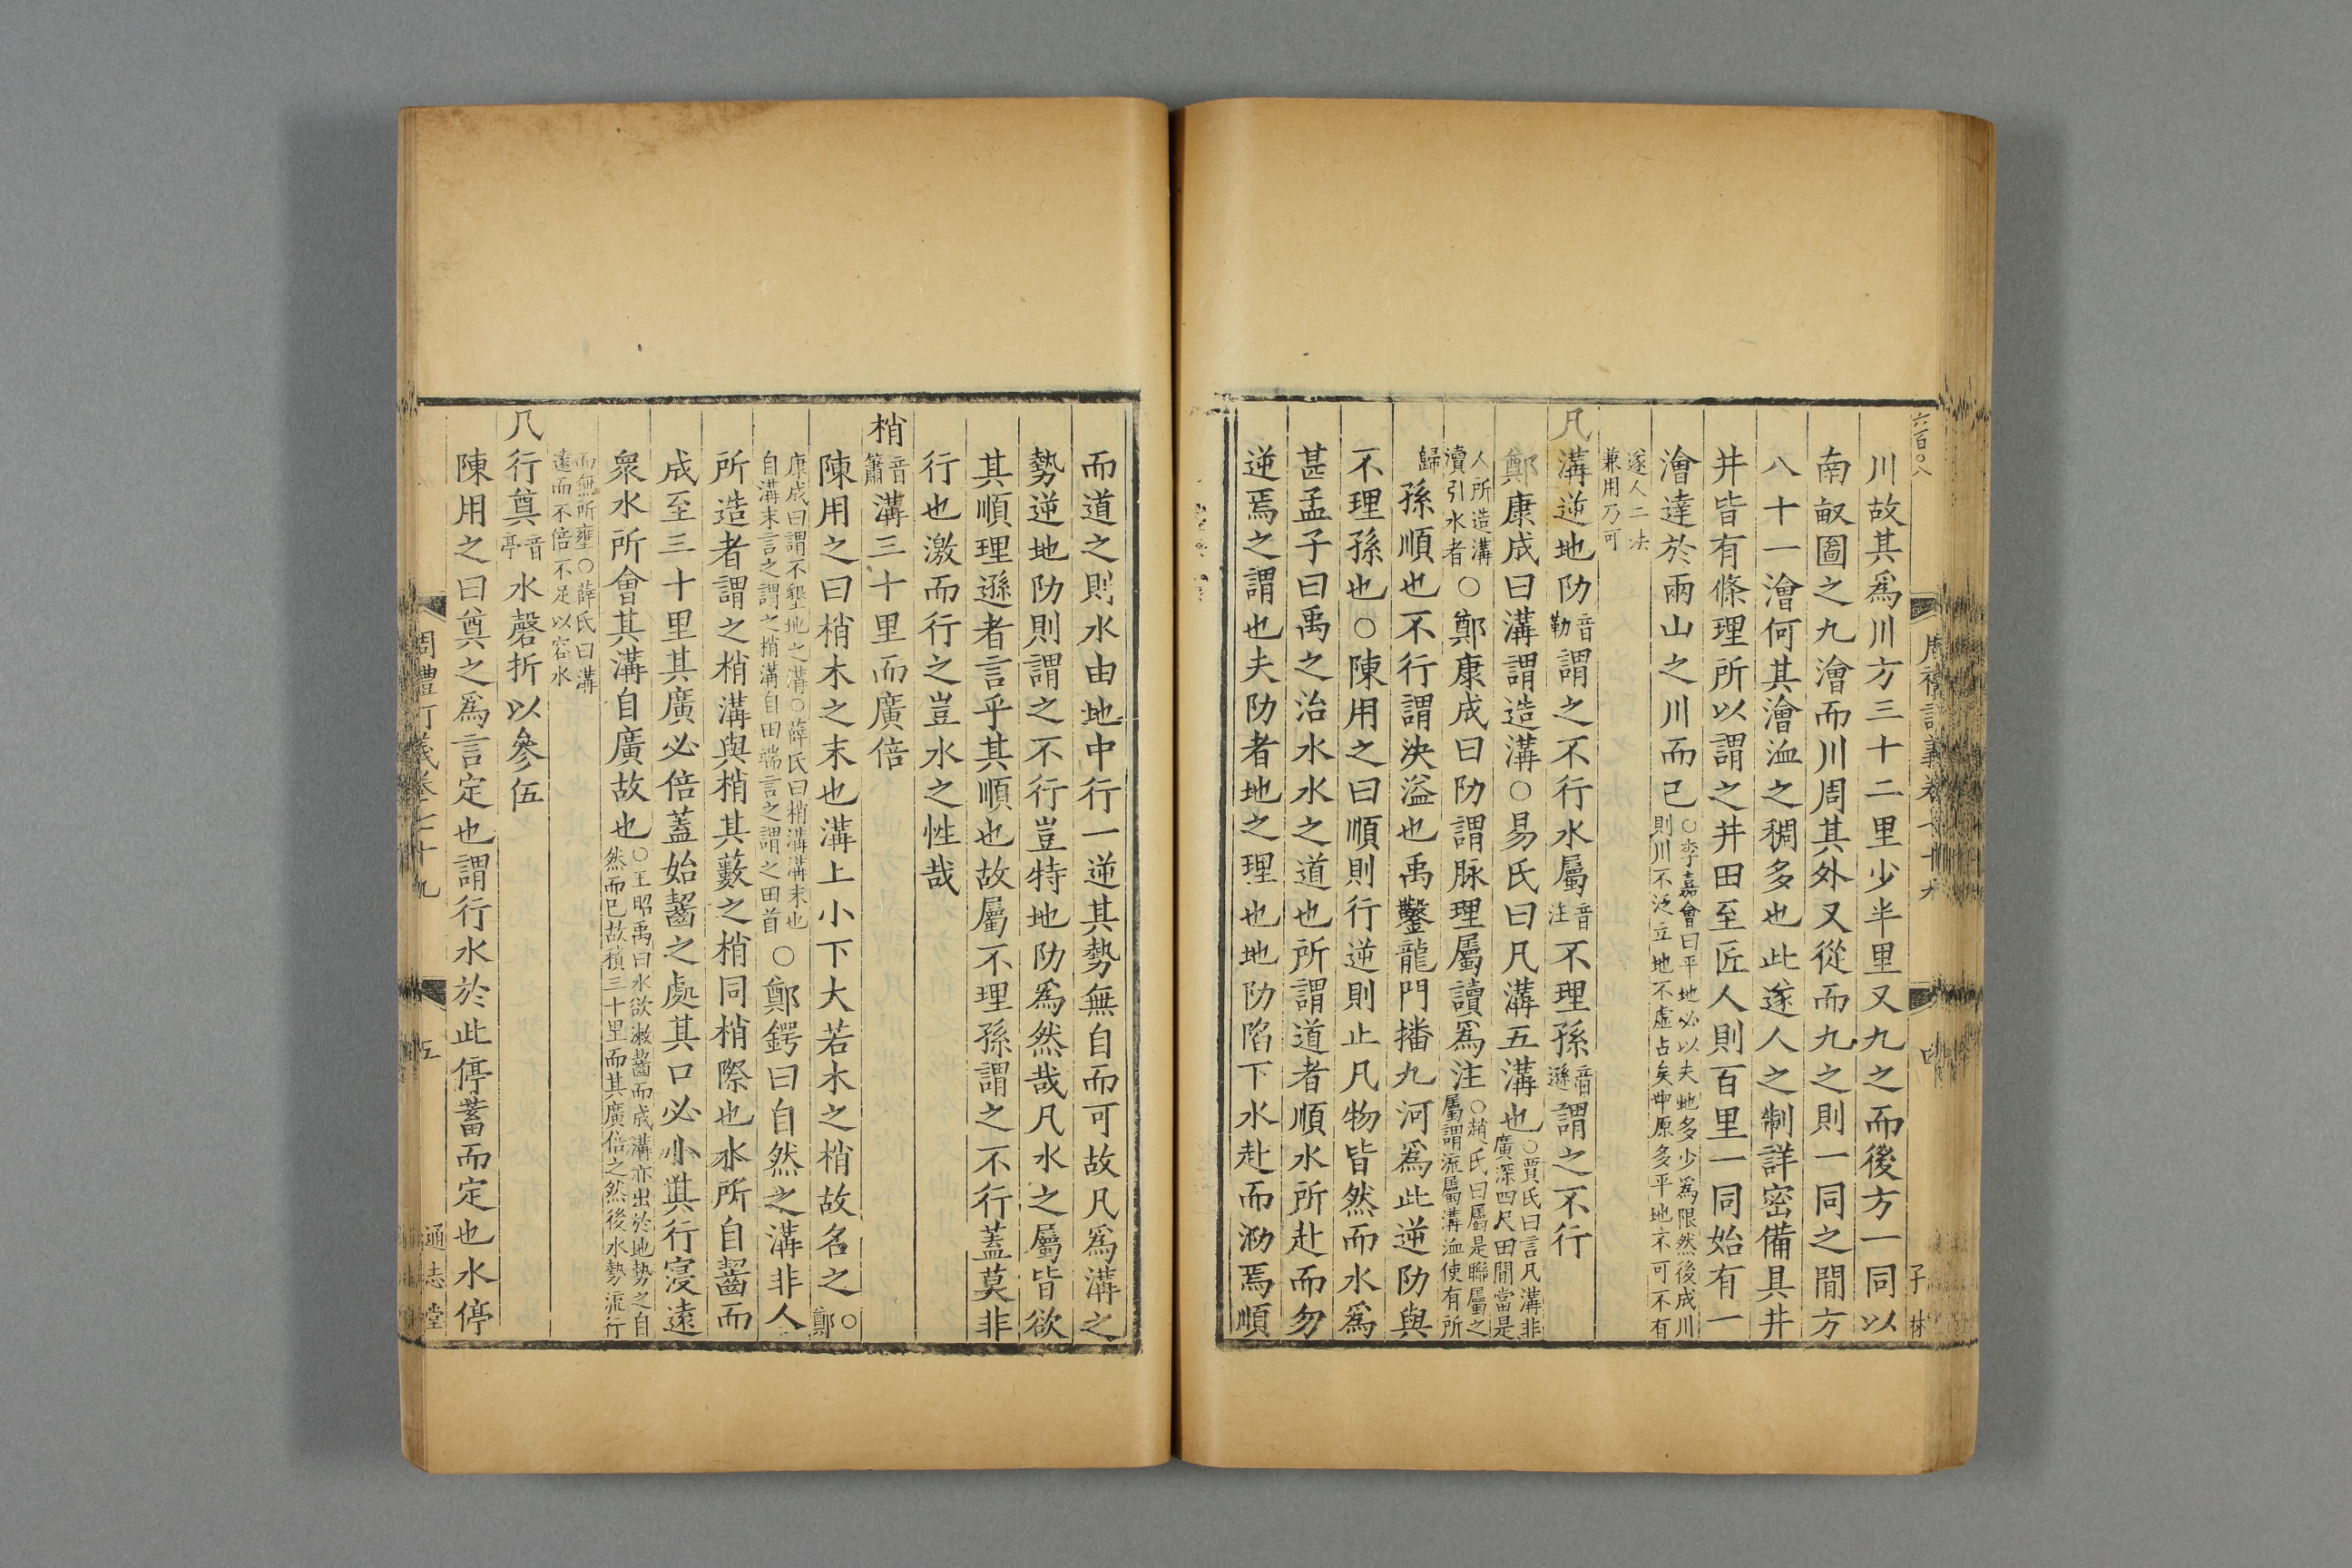 六百〇八
川故其爲川方三十二里少半里又九之而後方一同以
南畝圖之九澮而川周其外又從而九之則一同之間方
八十一澮何其澮洫之稠多也此遂人之制詳密備具井
井皆有條理所以謂之井田至匠人則百里一同始有一
澮達於兩山之川而已○李嘉會曰平地必以夫地多少爲限然後成川則川不泛立地不虛占矣中原多平地不可不有
遂人二法兼用乃可
凡溝逆地阞音勒謂之不行水屬音注不理孫音遜謂之不行
鄭康成曰溝謂造溝○易氏曰凡溝五溝也○賈氏曰言凡溝非廣深四尺田間當是
人所造溝瀆引水者○鄭康成曰阞謂脉理屬讀爲注○趙氏曰屬是聯屬之屬謂流屬溝洫使有所
歸孫順也不行謂決溢也禹鑿龍門播九河爲此逆阞與
不理孫也○陳用之曰順則行逆則止凡物皆然而水爲
甚孟子曰禹之治水水之道也所謂道者順水所赴而勿
逆焉之謂也夫阞者地之理也地阞陷下水赴而泐焉順
周禮訂義卷七十九
四
子林
而道之則水由地中行一逆其勢無自而可故凡爲溝之
勢逆地阞則謂之不行豈特地阞爲然哉凡水之屬皆欲
其順理遜者言乎其順也故屬不理孫謂之不行蓋莫非
行也激而行之豈水之性哉
梢音簫溝三十里而廣倍
陳用之曰梢木之末也溝上小下大若木之梢故名之○鄭
康成曰謂不墾地之溝○薛氏曰梢溝溝末也自溝末言之謂之梢溝自田端言之謂之田首○鄭鍔曰自然之溝非人
所造者謂之梢溝與梢其藪之梢同梢際也水所自齧而
成至三十里其廣必倍蓋始齧之處其口必小其行寖遠
衆水所會其溝自廣故也○王昭禹曰水欲漱齧而成溝亦出於地勢之自然而已故積三十里而其廣倍之然後水勢流行
而無所壅○薛氏曰溝遠而不倍不足以容水
凡行奠音亭水磬折以參伍
陳用之曰奠之爲言定也謂行水於此停蓄而定也水停
周禮訂義卷七十九
五
通志堂